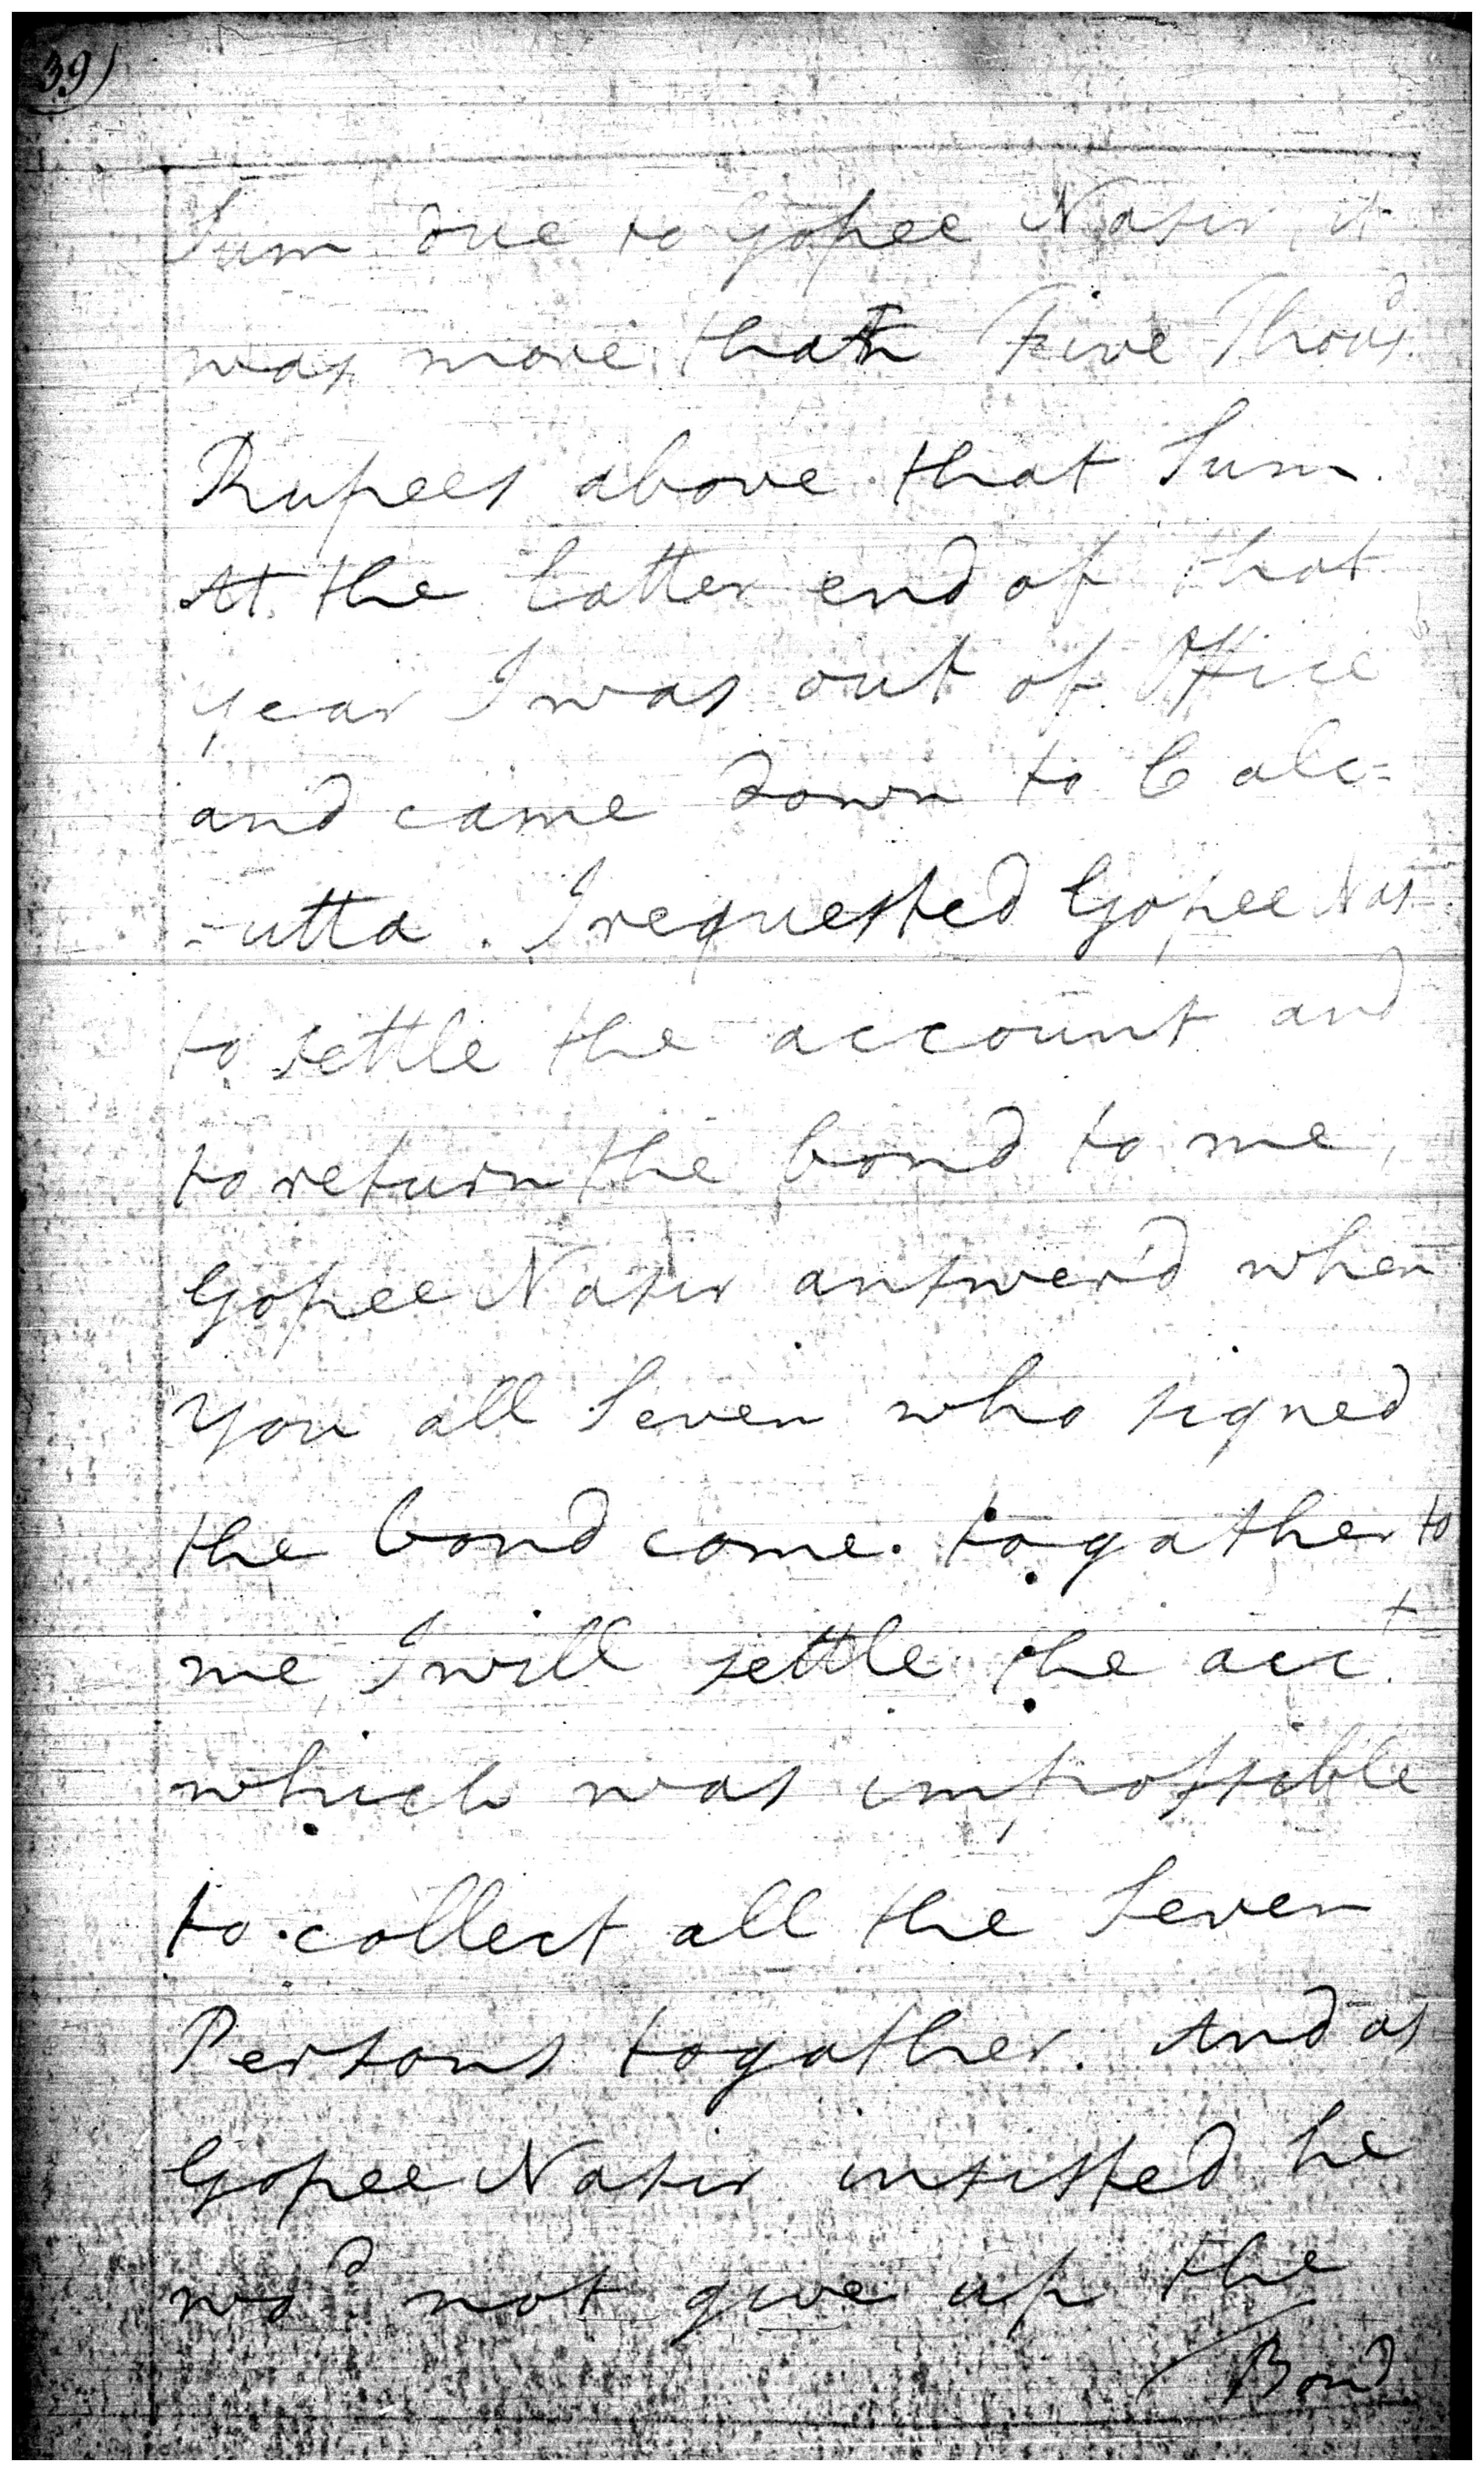 39)
Sum due to Gopee Nasir, it
was more than Five Thousd
Rupees above that Sum.
At the latter end of that
year I was out of Office
and came down to Calc=
=utta. I requested Gopee Nas
to settle the account and
to return the bond to me,
Gopee Nasir answer'd when
you all Seven who signed
the bond come togather to
me, I will settle the acct
which was impossible
to collect all the Seven
Persons togather. And as
Gopee Nasir insisted he
wod not give up the
Bond